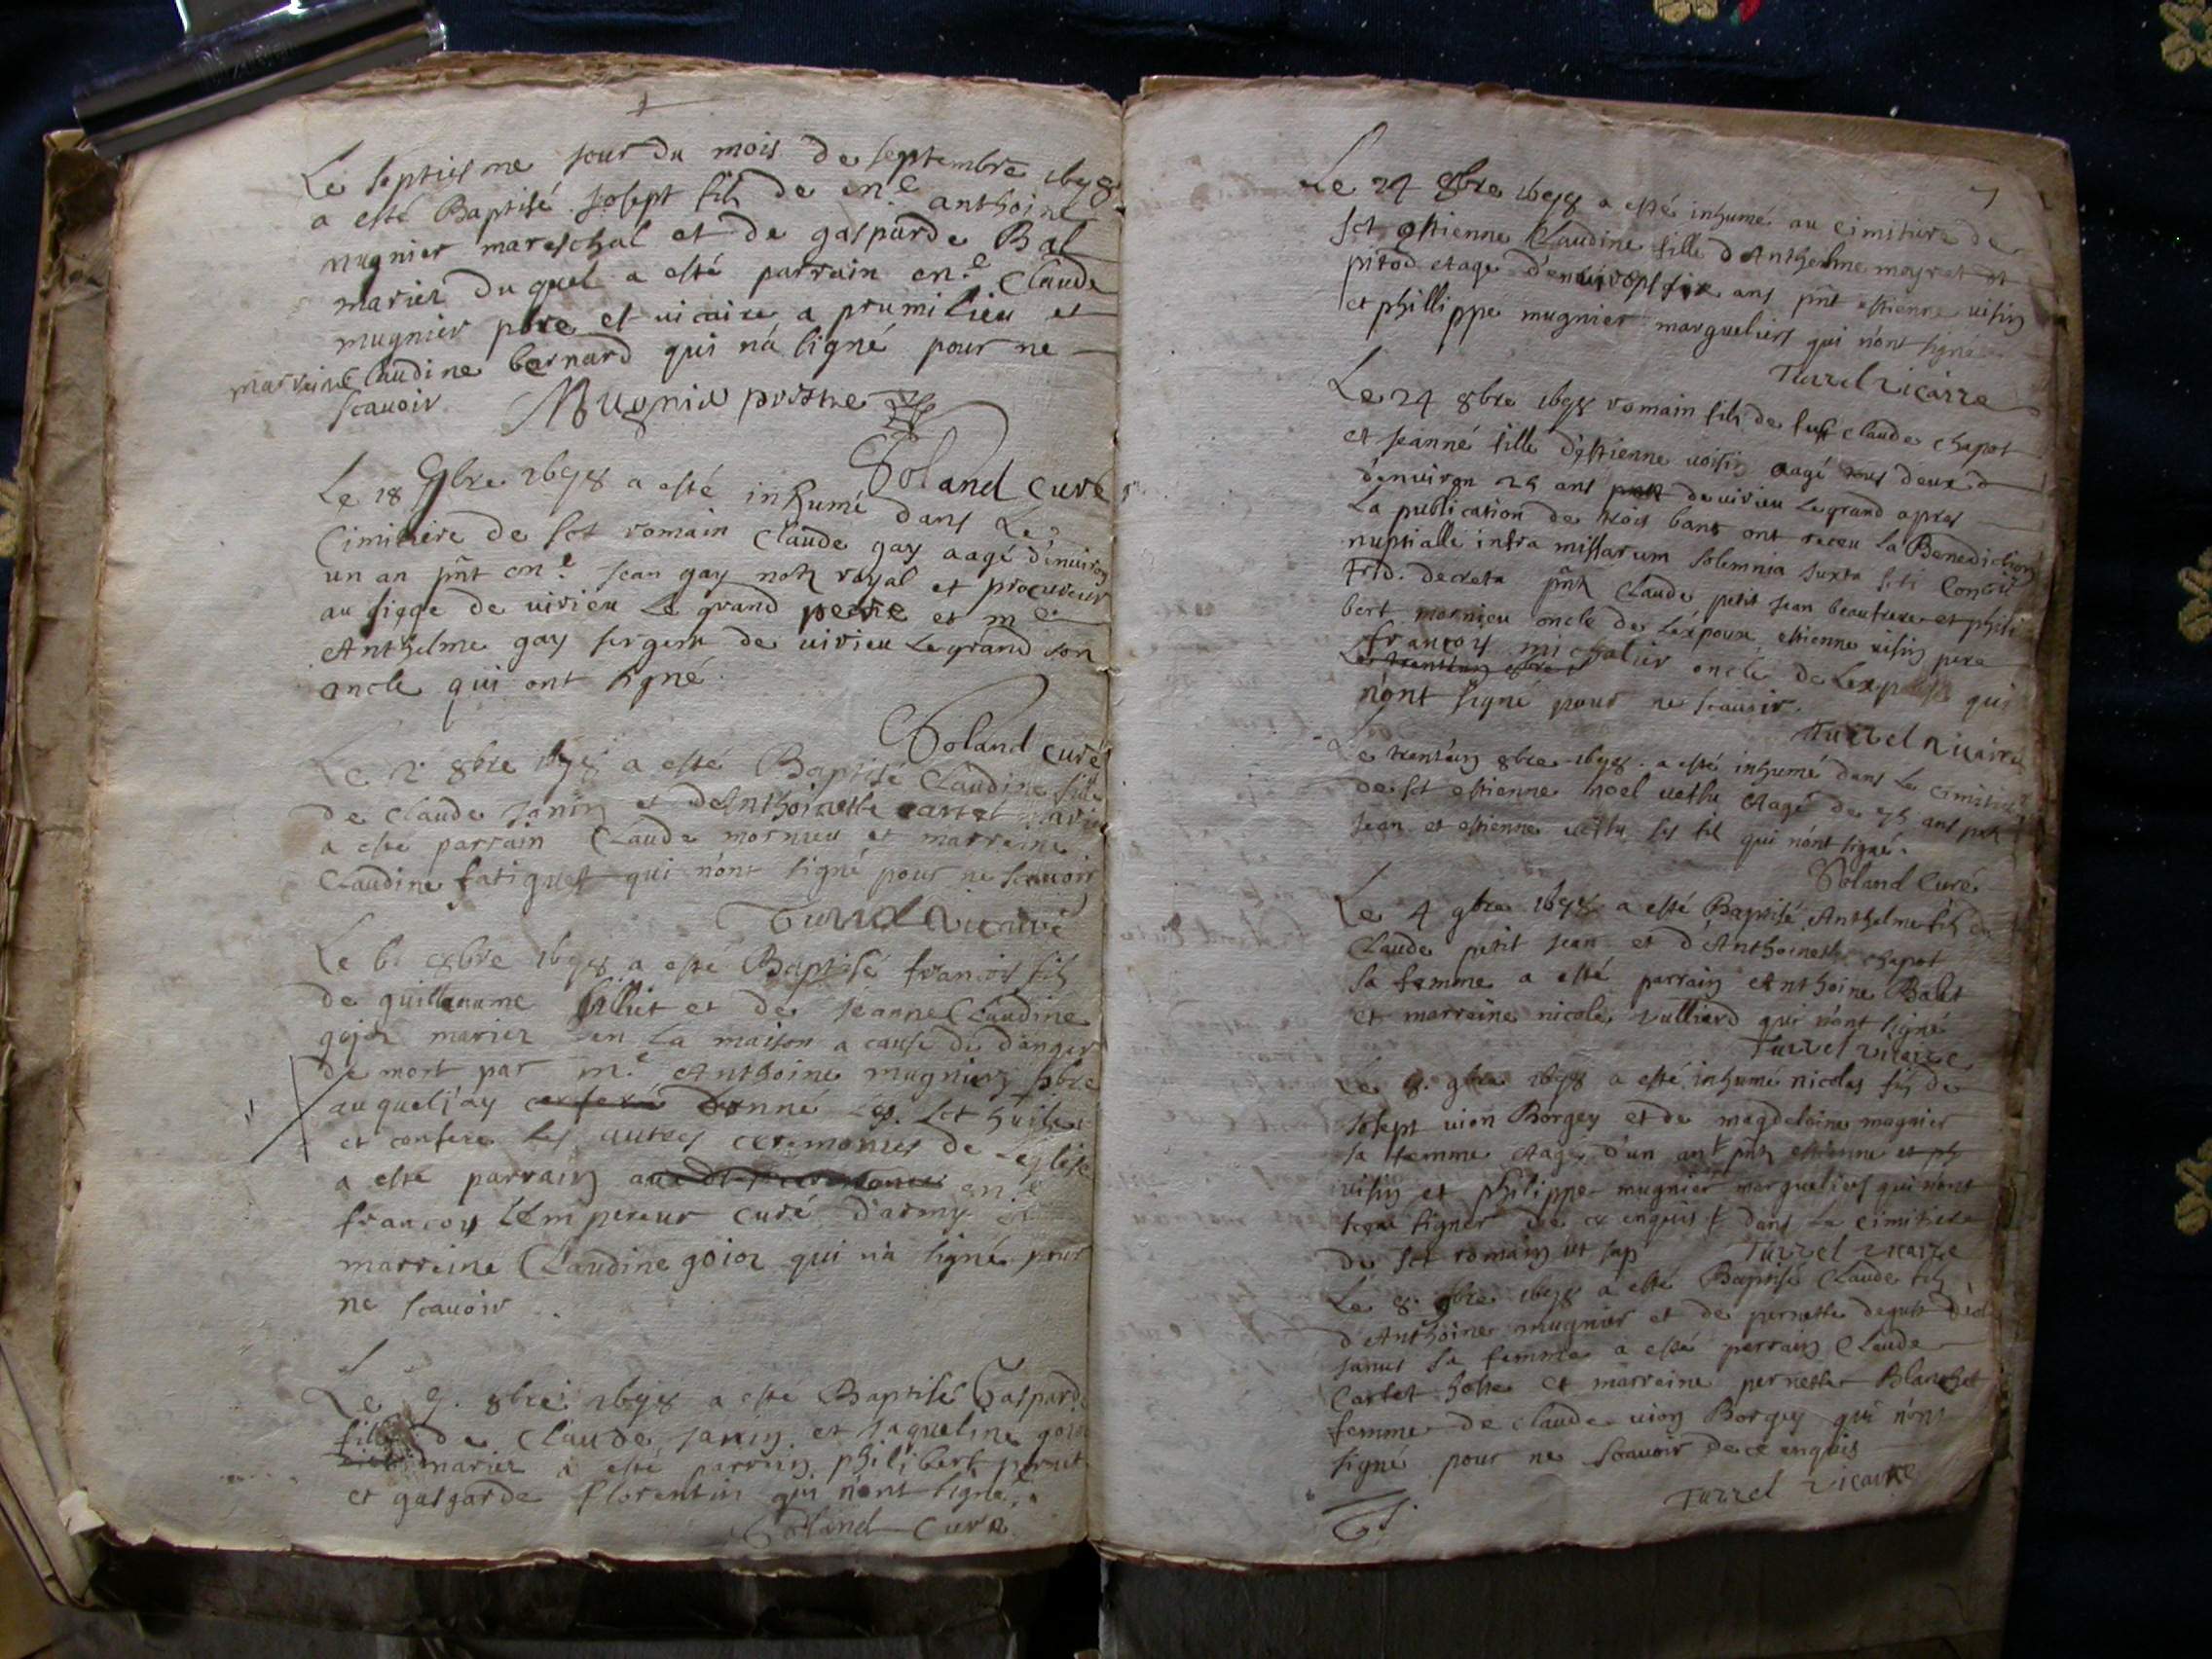 Le septiesme jour du mois de septembre 1698
a esté Baptisé Josept fils de en.e anthoine
mugnier mareschal et de gasparde Bal
mariez duquel a esté parrain en.e Claude
mugnier pbre et vicaire a prumilieu et
marraine Claudine bernard qui n'a signé pour ne
scavoir. Mugnier prestre
Soland curé
Le 18 9bre 1698 a esté inhumé dans Le
Cimitiere de sct romain Claude gay aagé d'environ
un an pnt en.e Jean gay nots royal et procureur
au siege de virieu Le grand pere et m.e
Anthelme gay sergent de virieu Legrand son
oncle qui ont signé.
Soland curé
Le 2 8bre 1698 a esté Baptisé Claudine fille
de Claude Janin et d'Anthoinette cartet
a esté parrain Claude mornieu et marreine
Claudine fatiguet qui n'ont signé pour ne scavoir
Turrel Vicaire
Le 6. 8bre 1698 a esté Baptisé francois fils
de guillaume billiet et de Jeanne Claudine
gojoz mariez en La maison a cause du danger
de mort par m.e Anthoine mugnier pbre
auquel j'ay donné Les sct huiles
et confere les autres ceremonies de l'eglise
a esté parrain en.e
francoy L'empereur curé d'army et
marreine Claudine goioz qui n'a signé pour
ne scavoir.
Le 9. 8bre 1698 a esté Baptisé Gasparde
fille de Claude Janin et Jaqueline
mariez a esté parrain philibert
et gasparde florentin qui n'ont signé.
Soland Curé
7
Le 24 8bre 1698 a esté inhumé au cimitiere de
sct estienne Claudine fille d'Anthelme meyret et
pitod et agé d'environ six ans pnt estienne visin
et phillippe mugnier margueliers qui n'ont signé
Turrel Vicaire
Le 24 8bre 1698 romain fils de fust claude chapot
et Jeanne fille d'estienne voisin aagé tous deux
d'environ 25 ans de virieu Legrand apres
La publication de trois bans ont receu La Benediction
nuptialle infra missarum solemnia juxta
Trid. decreta pnt Claude petit Jean beaufrere et phili
bert mornieu oncle de L'epoux, estienne visin pere
francoy michalier oncle de L'expouse qui
n'ont signé pour ne scavoir.
Turrel vicaire
Le trent'un 8bre 1698. a esté inhumé dans Le cimitiere
de sct estienne noel vettu Aagé de 75 ans pnt
Jean et estienne vettu ses fils qui n'ont signé.
Soland Curé
Le 4 9bre 1698 a esté Baptisé Anthelme fils de
Claude petit Jean et d'Anthoinette chapot
sa femme a esté parrain Anthoine Balet
et marreine nicole Vulliard qui n'ont signé
Turrel vicaire
Le 8. 9bre 1698 a esté inhumé nicolas fils de
Josept vion Borgey et de magdelaine mugnier
sa femme Aagé d'un an pnt estienne
visin et philippe mugnier margueliers qui n'ont
signer de ce enquis dans Le cimitiere
de sct romain ut sup Turrel vicaire
Le 8. 9bre 1698 a esté Baptisé Claude fils
d'Anthoine mugnier et de pernette
sa femme a esté perrain Claude
Cartet hoste et marreine pernette Blanchet
femme de claude vion Borgey qui n'ont
signé pour ne scavoir de ce enquis
Turrel vicaire